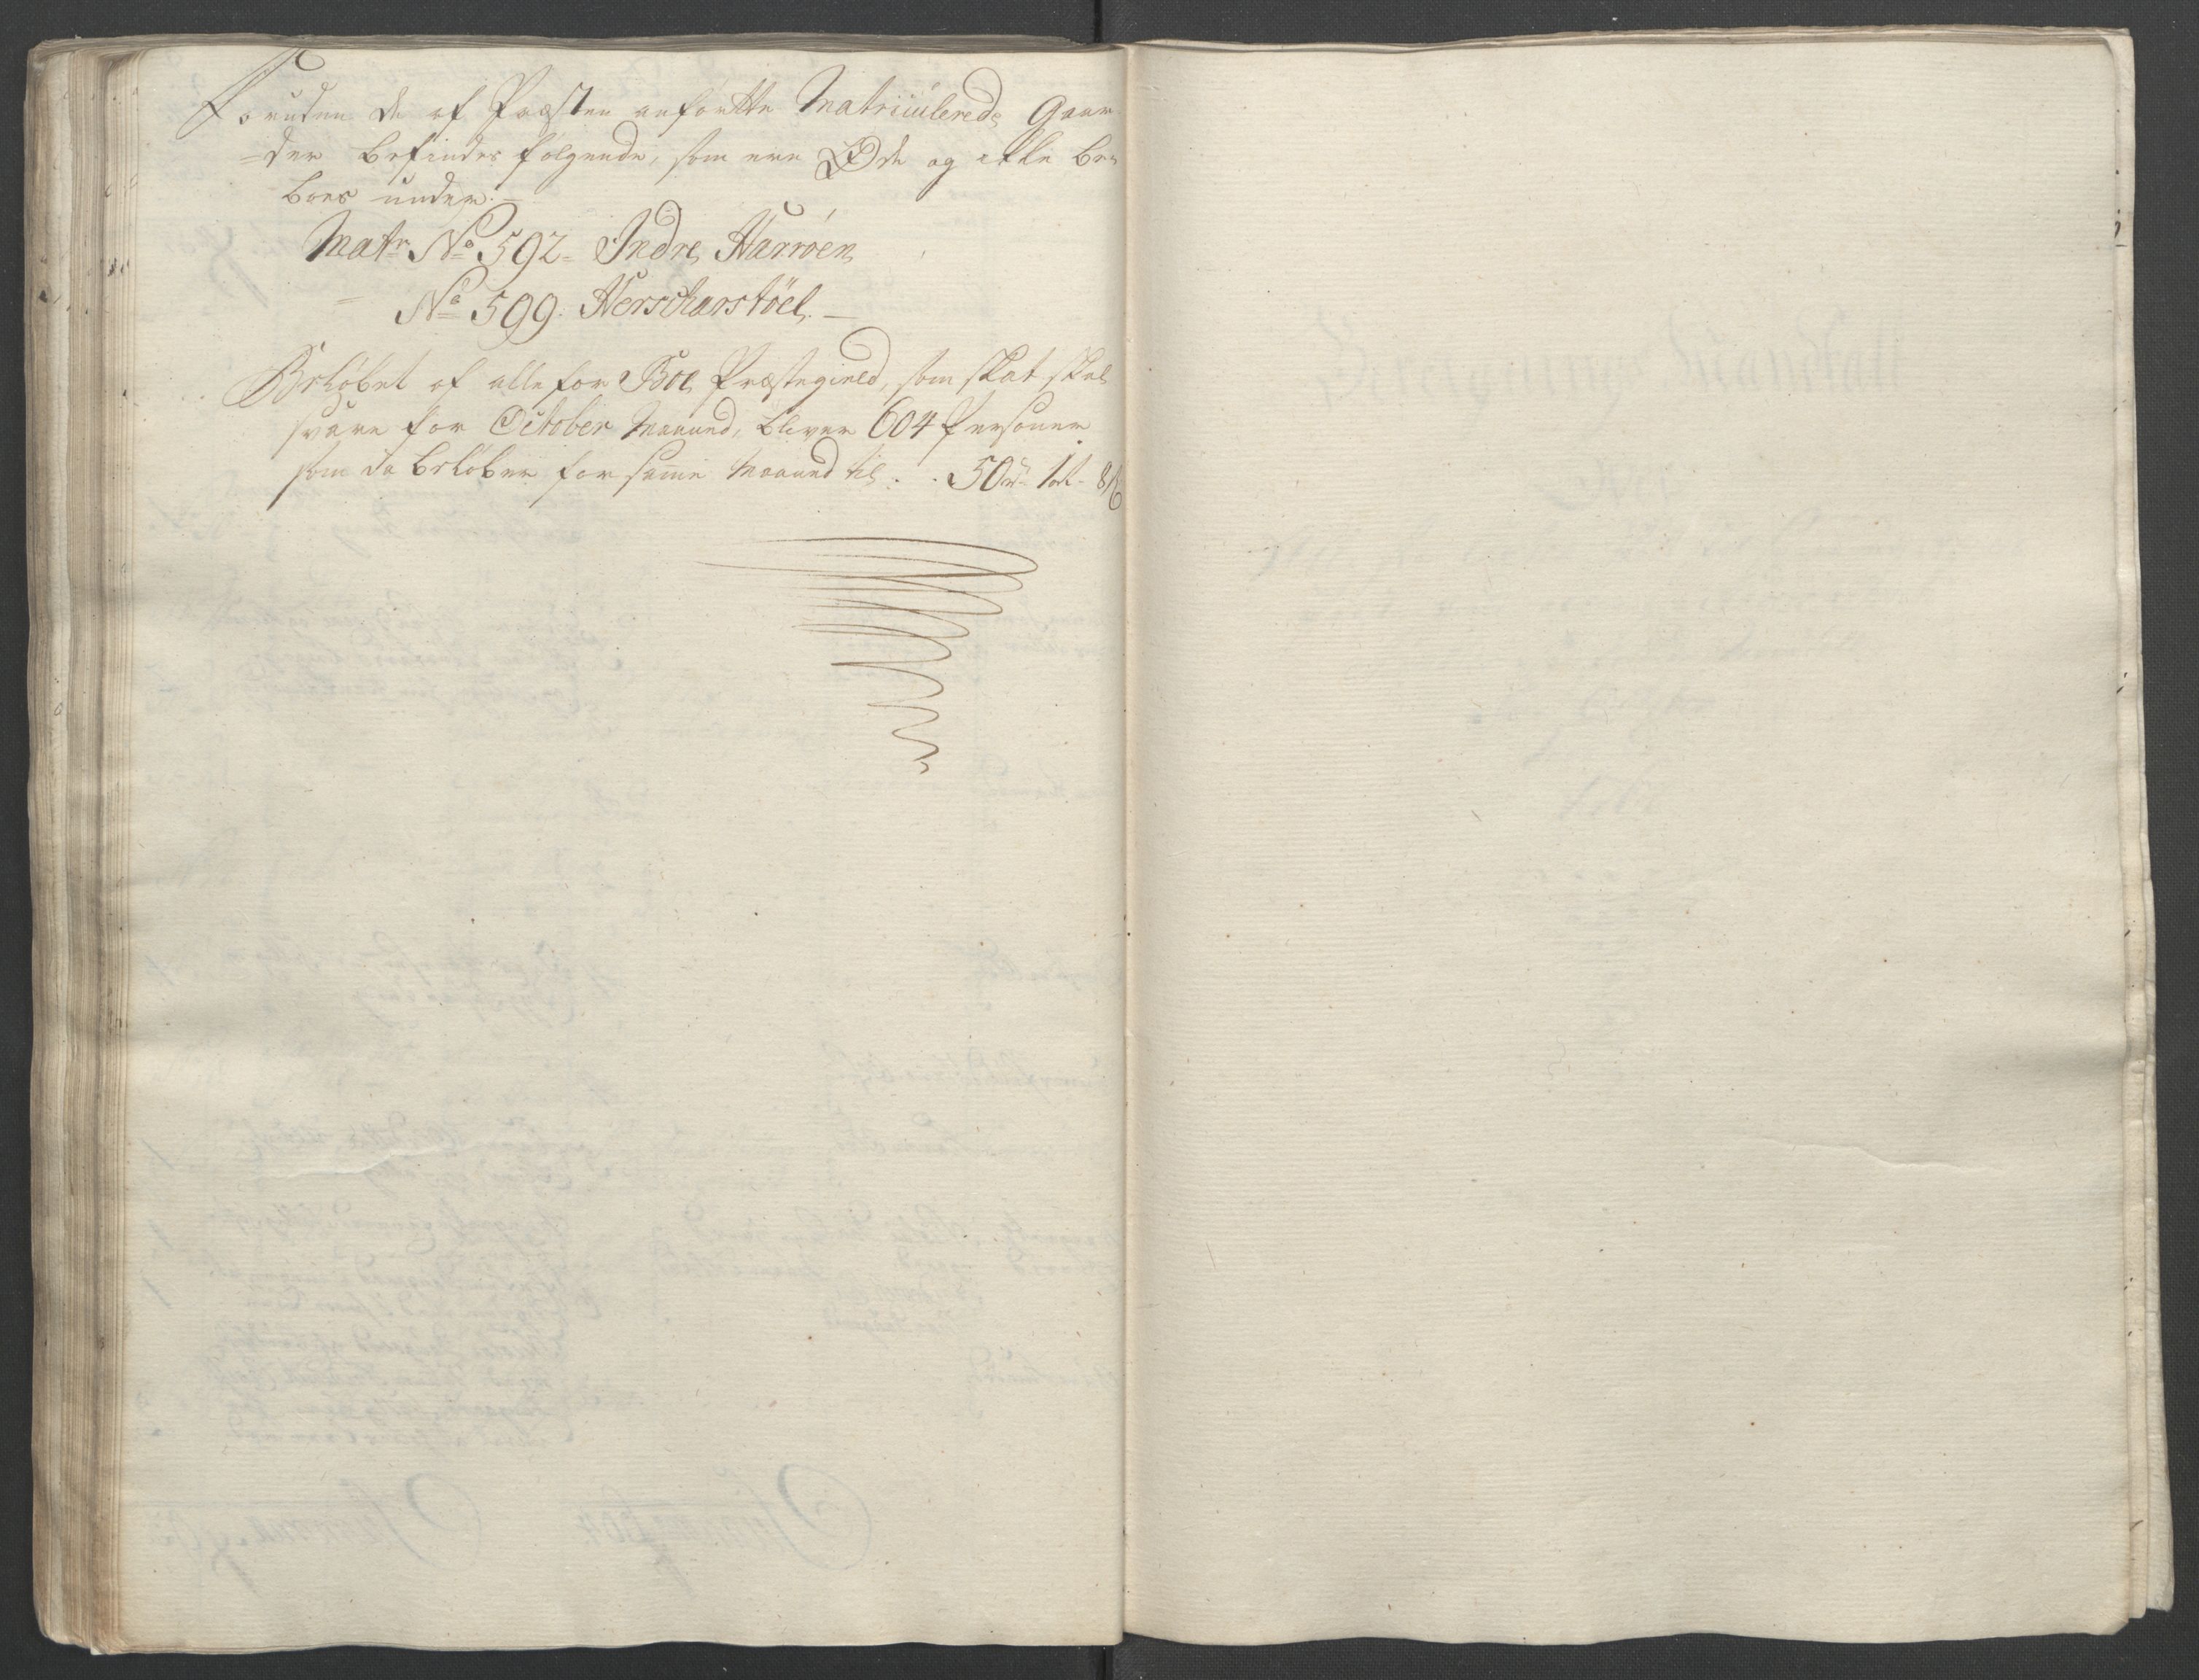 Foruden de af Præsten anførtte Matriculerede Gaar-
-der befindes følgende, som ere Øde og ikke be-
boes under.
Matr No 592 - Indre Harröen
No 599. Herscharstöel. -
Beløbet af alle for Böe Præstegield, som skat skal
svare for October Maaned, bliver 604 Personer
som da beløber for samme Maaned til . . 50 rd 1 ort 8 s